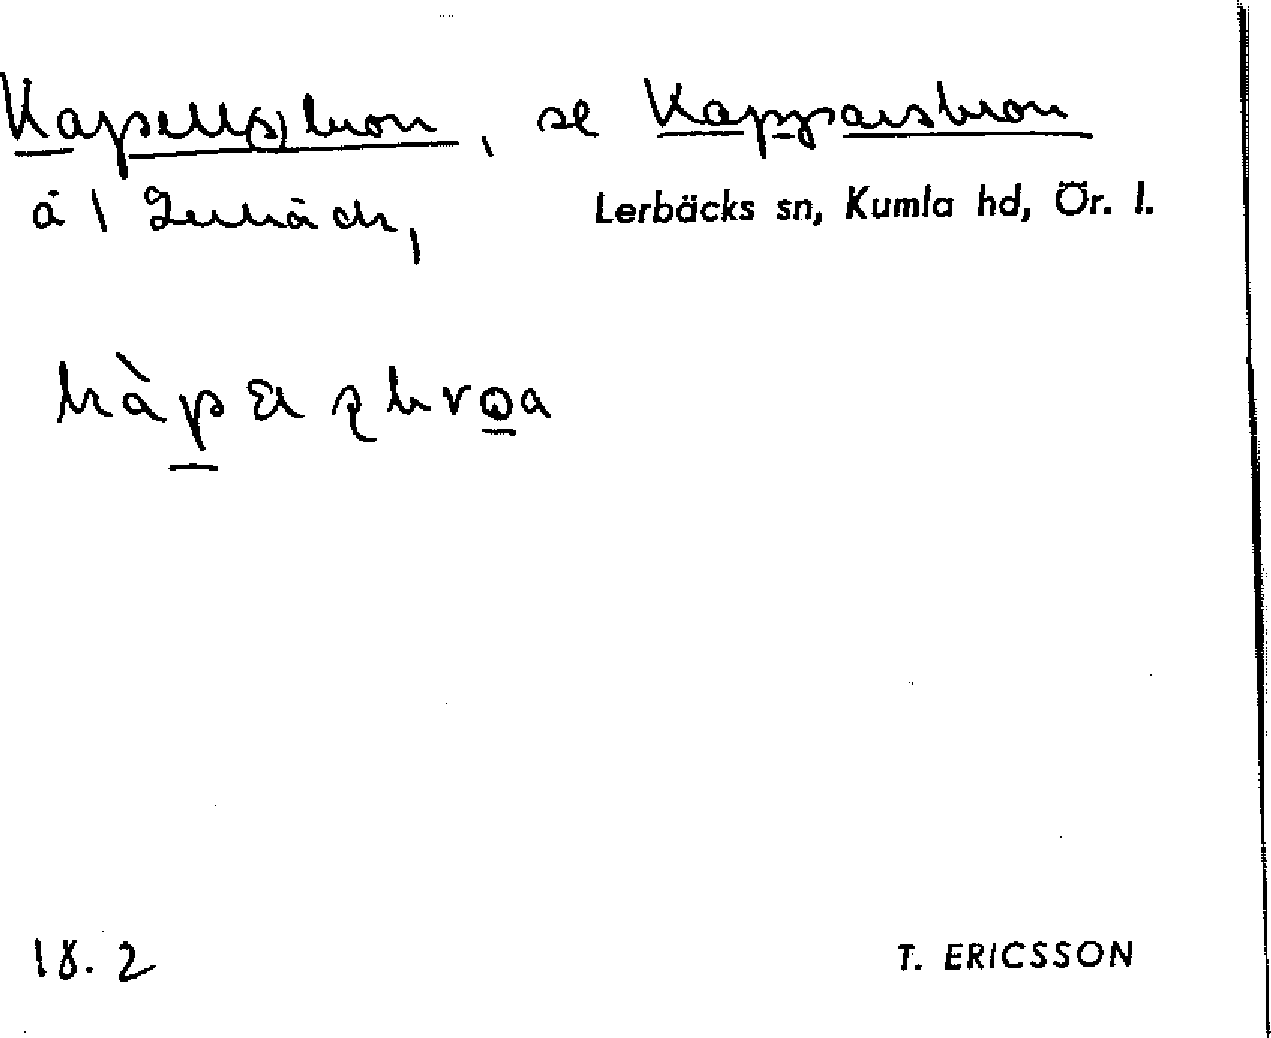 Kapell(s)bron, se Kapparsbron
Lerbäck, Lerbäcks sn, Kumla hd, Ör. l.
18.2 T. ERICSSON